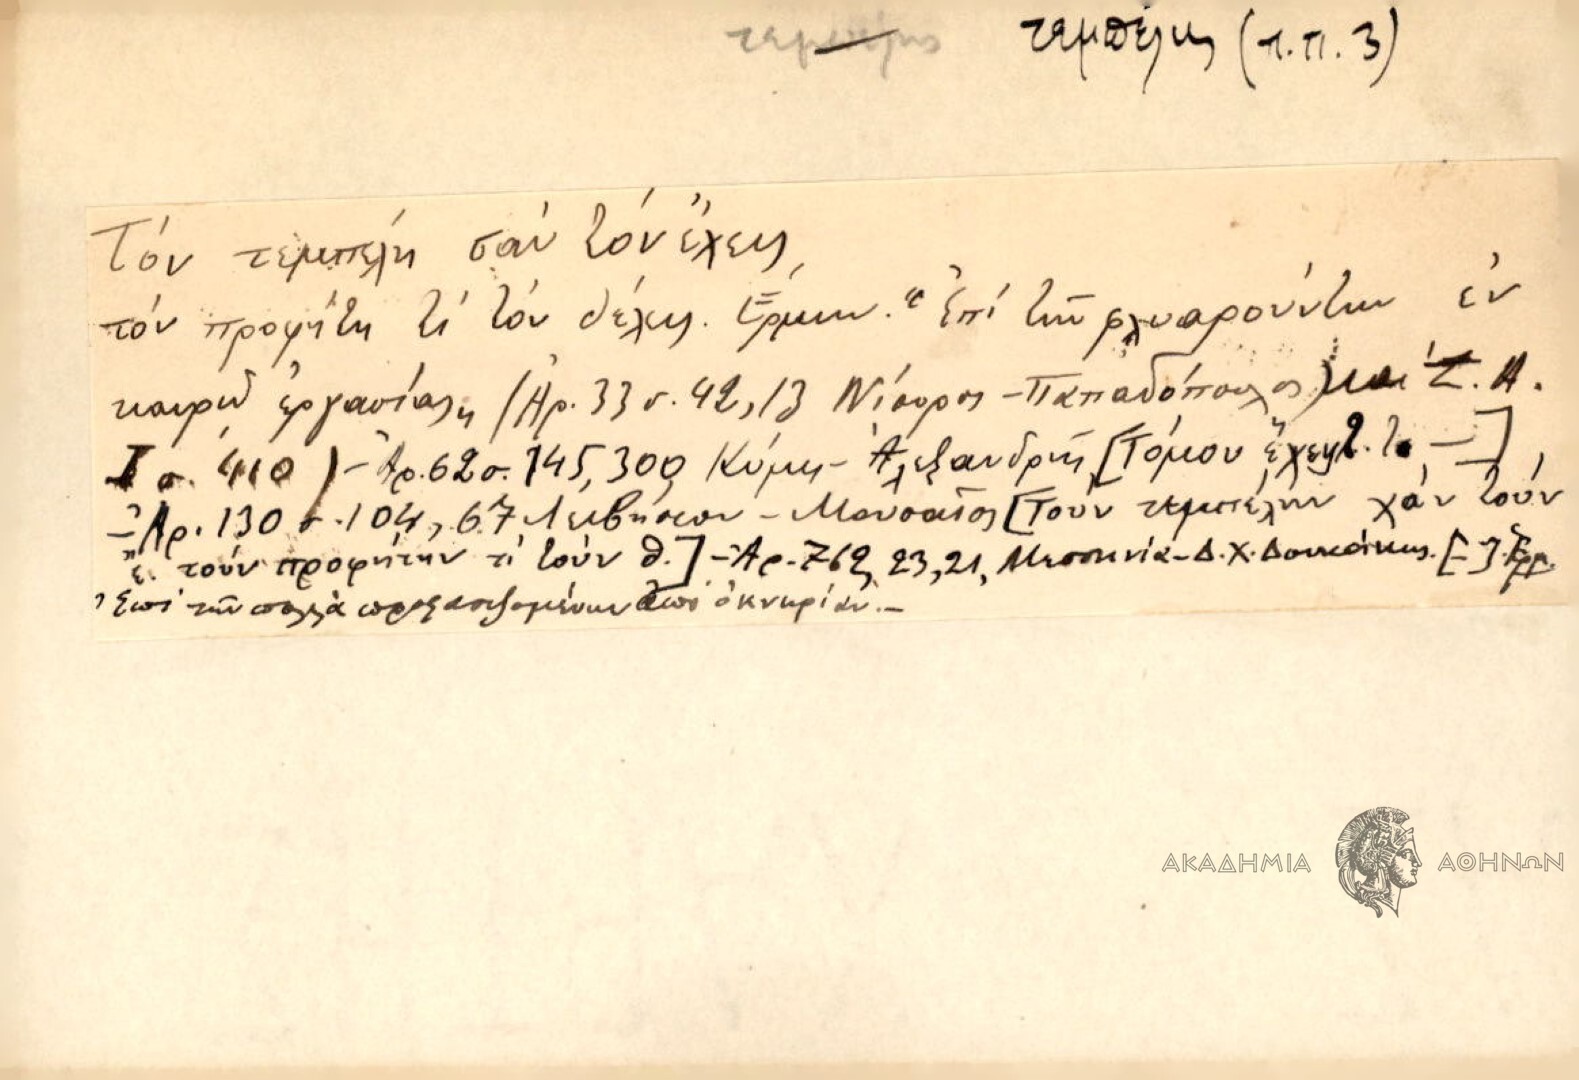 τεμπέλης τεμπέλης (π.π. 3)
Τόν τεμπέλη σάν τόν ἔχεις,
τόν προφήτη τί τόν θέλεις. Ἑρμην. "Ἐπί τῶν φλυαρούντων ἐν
καιρῷ ἐργασίας, (Ἀρ. 33 σ. 42, 13 Νίσυρος - Παπαδόπουλος) καί Ζ.Α.
I σ. 410) - Ἀρ. 62 σ. 145, 300, Κύμη - Ἀλεξανδρῆς [Τόμου ἔχεις —],
- Ἀρ. 130 σ. 104, 67 Λειβήσιον - Μουσαῖος [Τούν τεμπέλην χάν τούν
ἔ. τούν προφήτην τί τούν θ.] - Ἀρ. 762, 23, 21, Μεσσηνία - Δ.Χ. Δουκάκης. [-] Ἑρμ.
Ἐπί τῶν πολλά προφασιζομένων ἀπό ὀκνηρίαν. -
ΑΚΑΔΗΜΙΑ ΑΘΗΝΩΝ